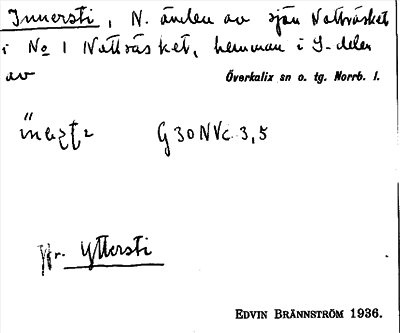 Innersti, N. ändan av sjön Nattträsket
i No 1 Nattträsket, hemman i S-delen
av Överkalix sn o. tg. Norrb. l.
G 30 N Vc. 3,5
Jfr. Yttersti
EDVIN BRÄNNSTRÖM 1936.